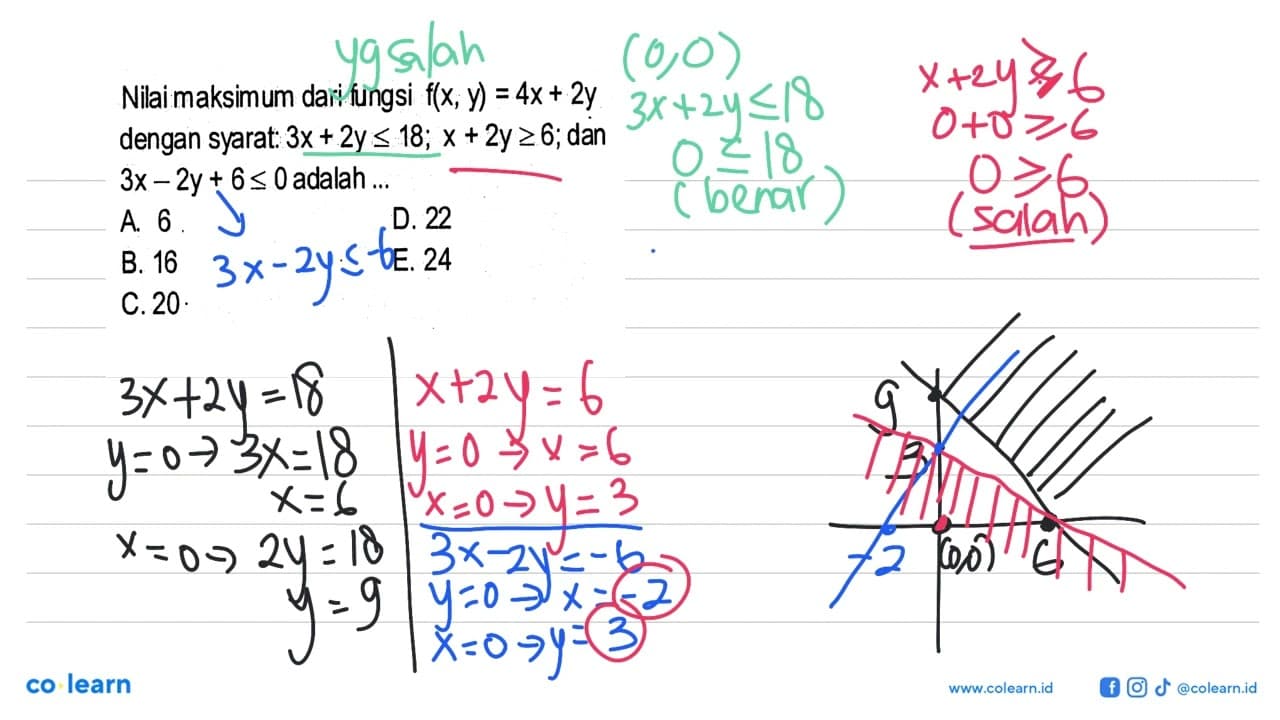 yg salah
Nilai maksimum dari fungsi f(x, y) = 4x + 2y
dengan syarat: 3x + 2y ≤ 18; x + 2y ≥ 6; dan
3x – 2y + 6 ≤ 0 adalah ...
A. 6
B. 16
C. 20
D. 22
E. 24
3x-2y≤-6
(0,0)
3x+2y≤18
0≤18
(benar)
x+2y≥6
0+0≥6
0≥6
(salah)
3x+2y=18
y=0→3x=18
x=6
x=0→2y=18
y=9
x+2y=6
y=0→x=6
x=0→y=3
3x-2y=-6
y=0→x=-2
x=0→y=3
9
3
-2
(0,0)
6
co learn
www.colearn.id
@colearn.id